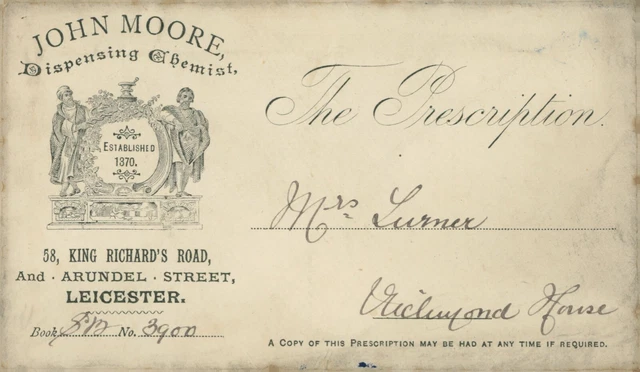 JOHN MOORE,
Dispensing Chemist,
ESTABLISHED
1870.
58, KING RICHARD'S ROAD,
And · ARUNDEL · STREET,
LEICESTER.
Book No. 3900
The Prescription.
Mrs Turner
Richmond House
A COPY OF THIS PRESCRIPTION MAY BE HAD AT ANY TIME IF REQUIRED.